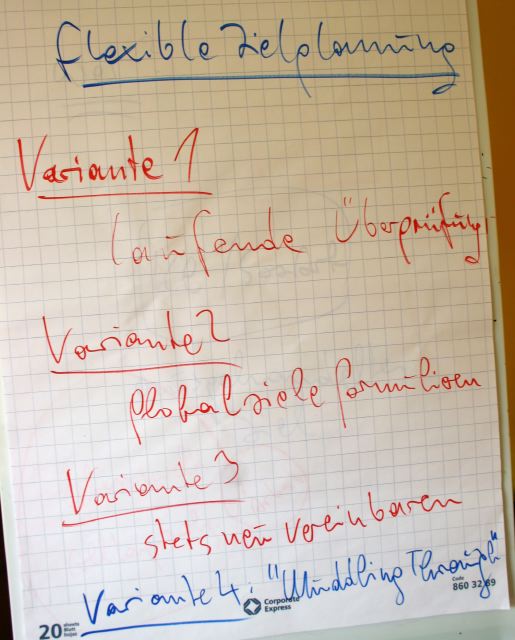 flexible Zielplanung
Variante 1
laufende Überprüfung
Variante 2
Globalziele formulieren
Variante 3
stets neu vereinbaren
Variante 4: "Muddling Through"
20 sheets
Blatt
Corporate
Express
Code
860 32 89